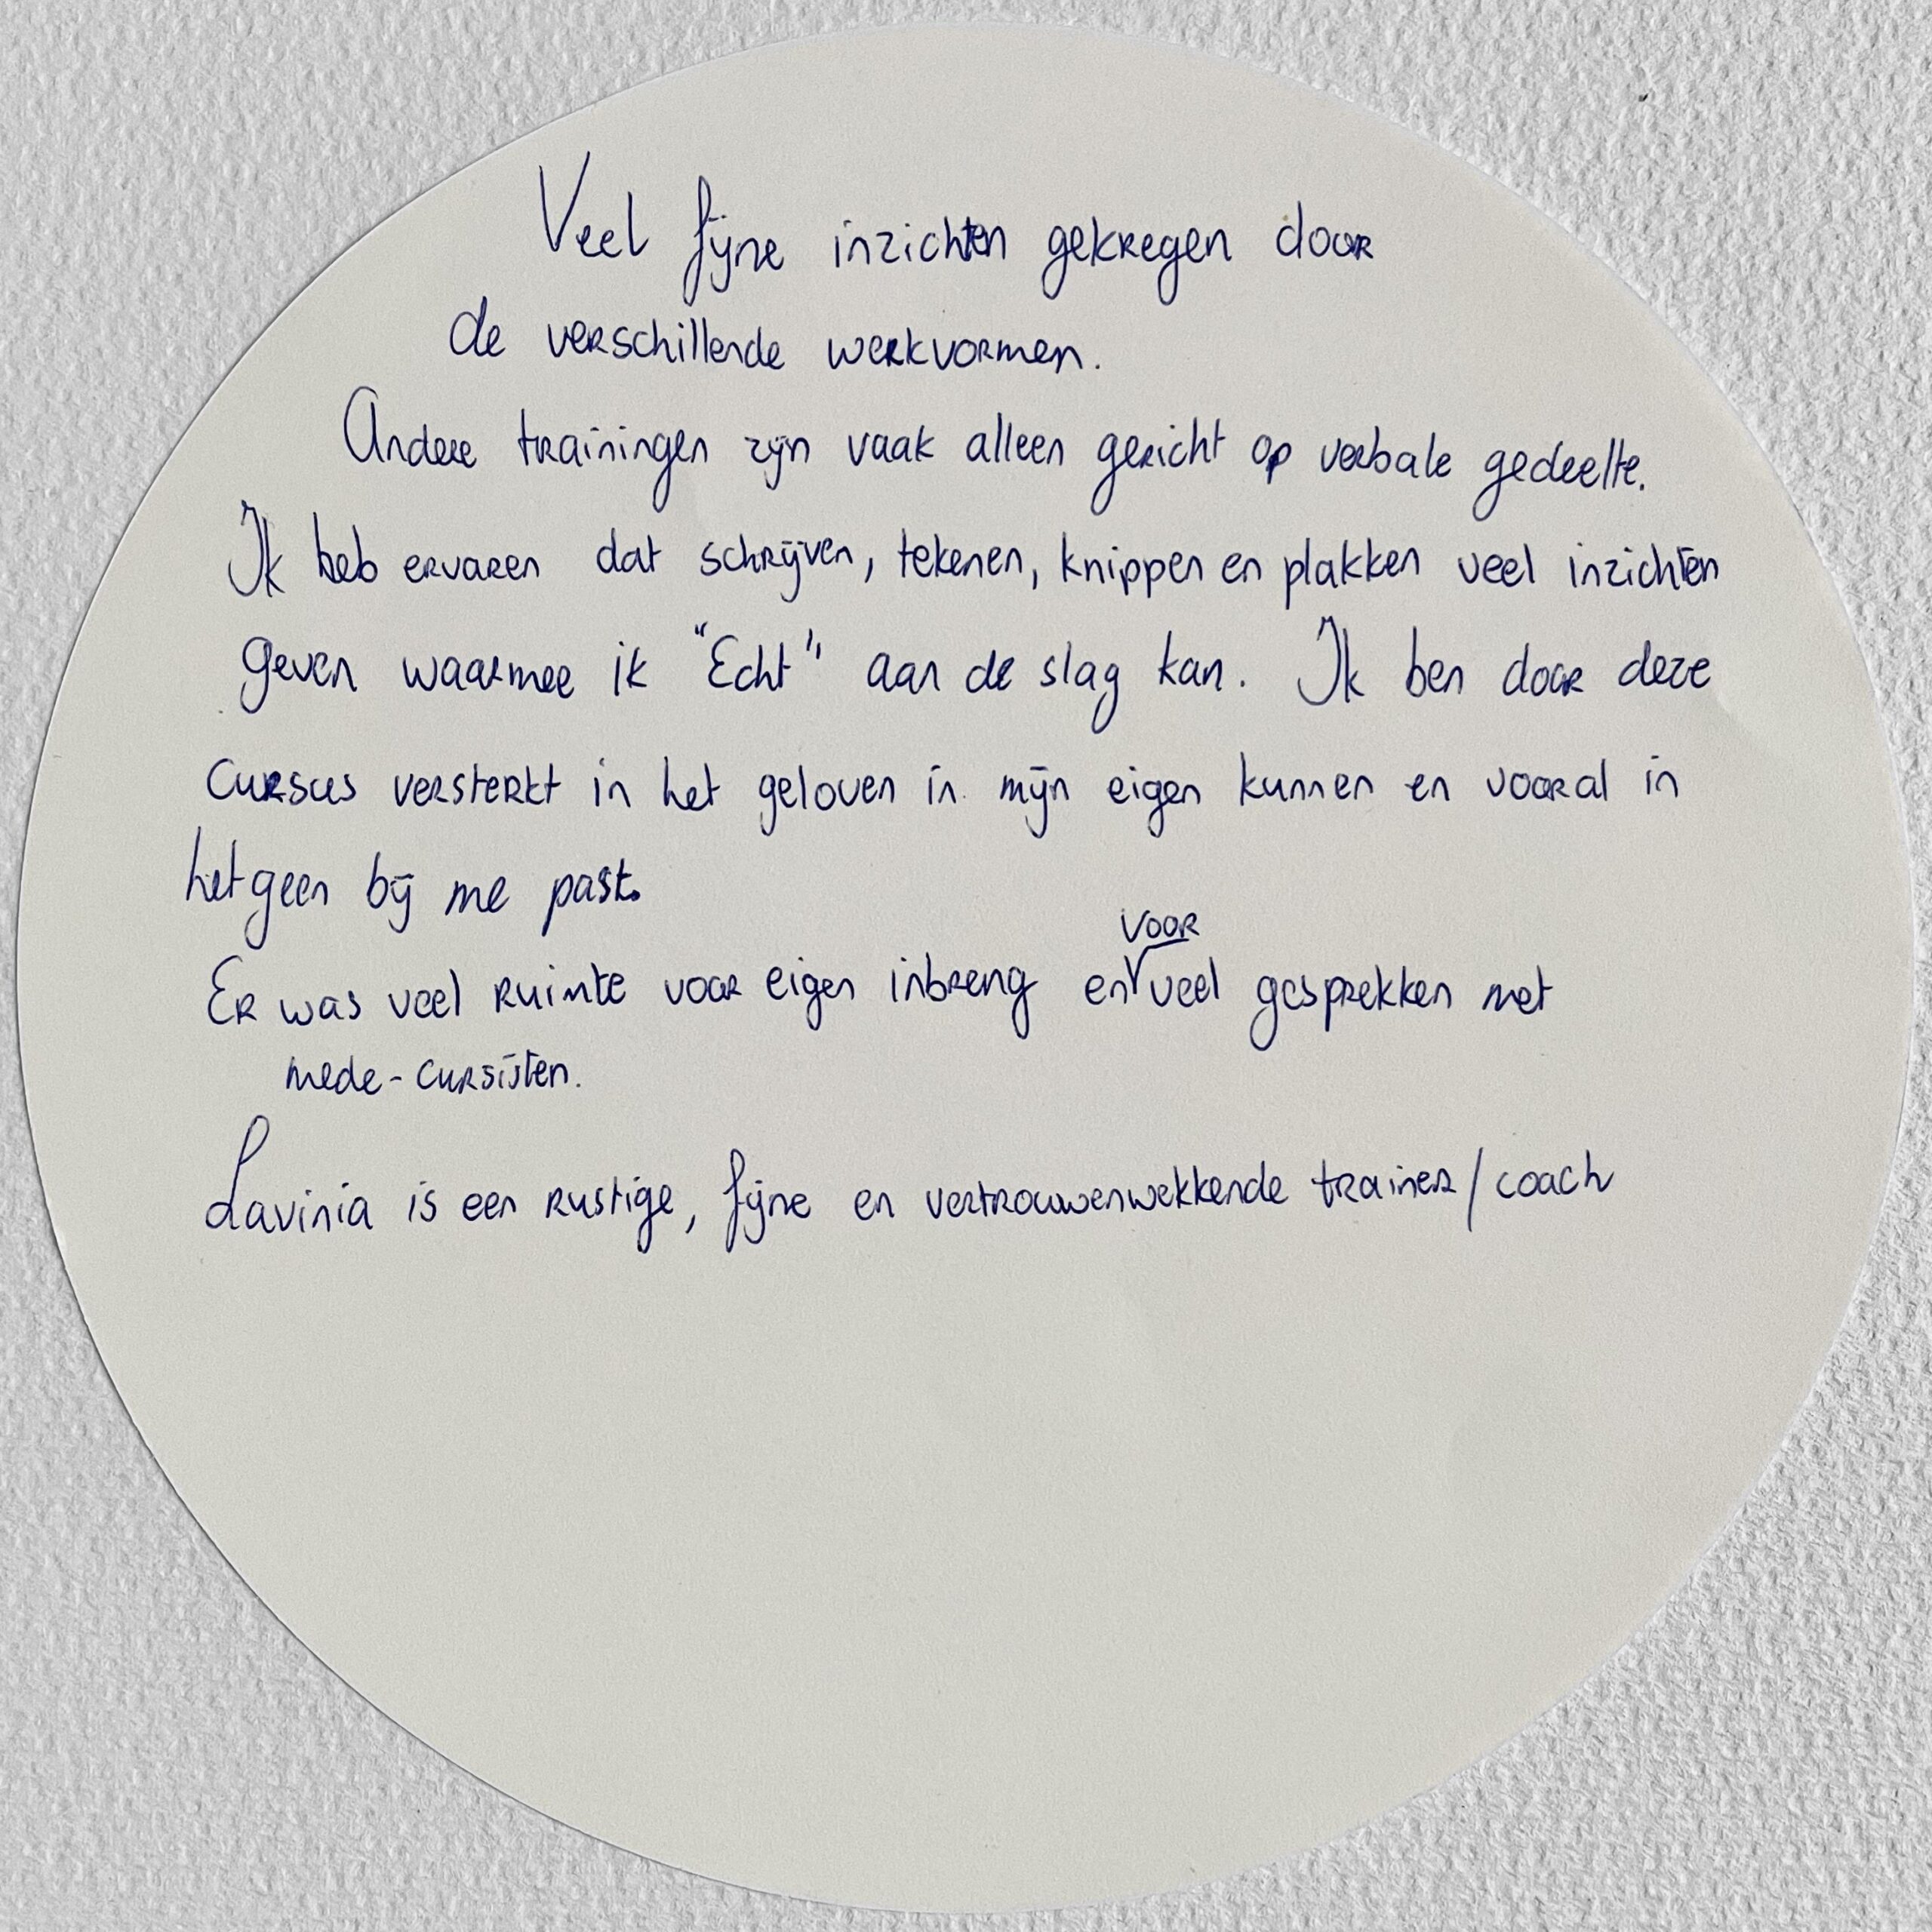 Veel fijne inzichten gekregen door
de verschillende werkvormen.
Andere trainingen zijn vaak alleen gericht op verbale gedeelte.
Ik heb ervaren dat schrijven, tekenen, knippen en plakken veel inzichten
geven waarmee ik "Echt" aan de slag kan. Ik ben door deze
cursus versterkt in het geloven in mijn eigen kunnen en vooral in
hetgeen bij me past.
Er was veel ruimte voor eigen inbreng en voor veel gesprekken met
mede-cursisten.
Lavinia is een rustige, fijne en vertrouwenwekkende trainer/coach